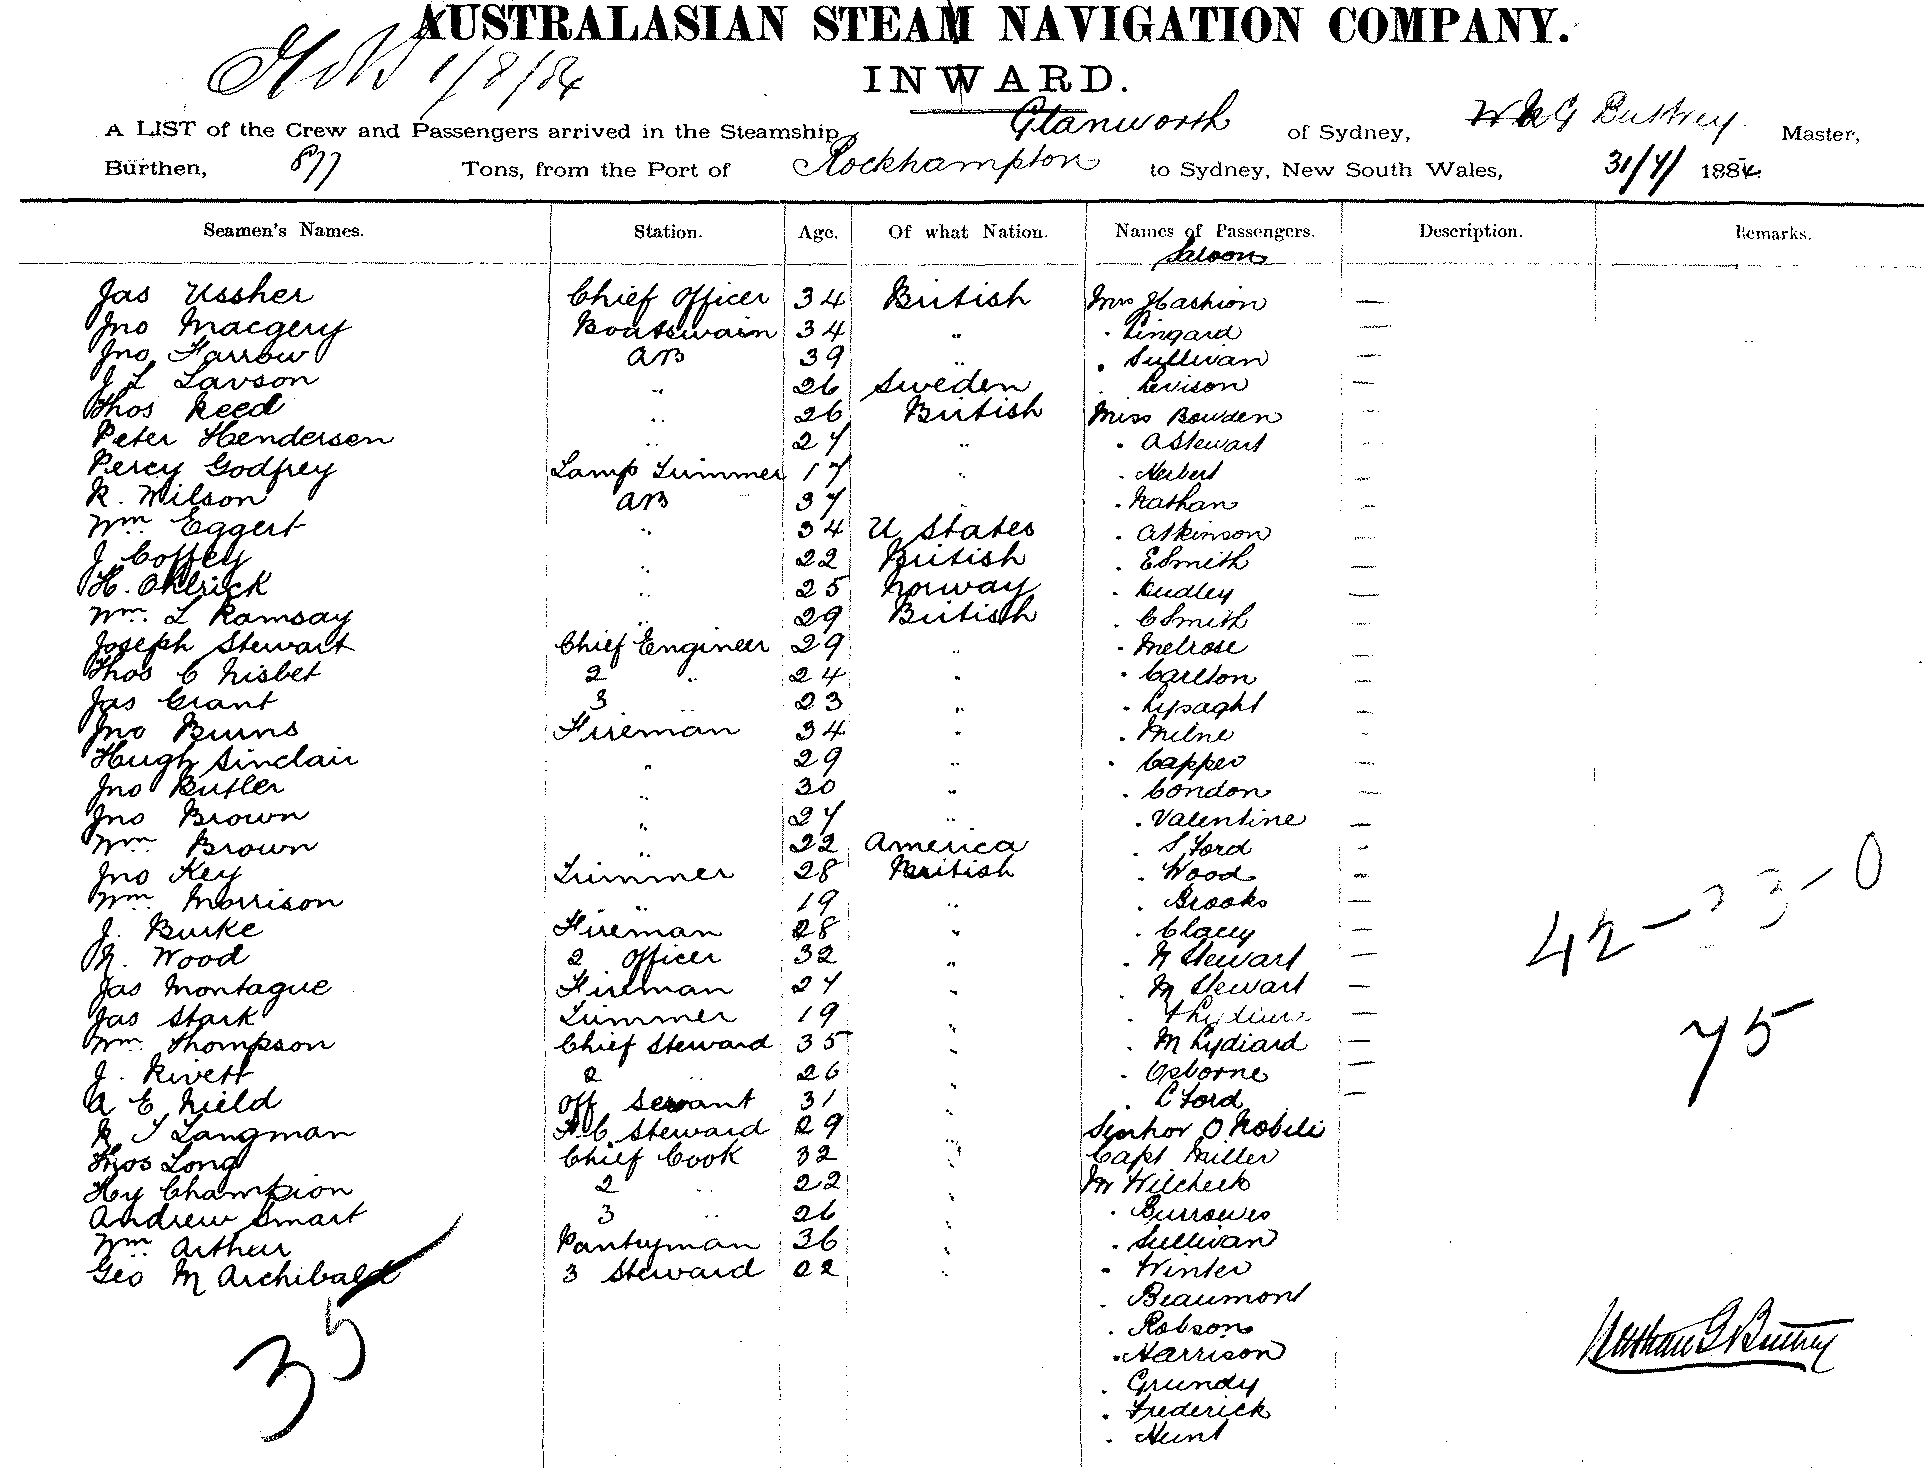 AUSTRALASIAN STEAM NAVIGATION COMPANY.
1/8/84
INWARD.
A LIST of the Crew and Passengers arrived in the Steamship, Glanworth of Sydney, G Buttrey Master,
Burthen, 877 Tons, from the Port of Rockhampton to Sydney, New South Wales, 31/7/ 1884
Seamen's Names. Station. Age. Of what Nation. Names of Passengers. Description. Remarks.
Saloon
Jas Ussher Chief Officer 34 British Mrs Hashion —
Jno Macgery Boatswain 34 " " Lingard —
Jno Farrow AB 39 " " Sullivan —
J L Lavson " 26 Sweden Levison —
Thos Reed " 26 British Miss Bowden —
Peter Hendersen " 27 " " A Stewart —
Percy Godfrey Lamp Trimmer 17 " " Herbert —
R. Wilson AB 37 " Nathan —
Wm Eggert " 34 U States " Atkinson —
J. Coffey " 22 British " E Smith —
H. Ohlrick " 25 Norway " Dudley —
Wm. L Ramsay " 29 British " C Smith —
Joseph Stewart Chief Engineer 29 " " Melrose —
Thos C Nisbet 2 " 24 " " Carlton —
Jas Grant 3 " 23 " " Lysaght —
Jno Burns Fireman 34 " " Milne —
Hugh Sinclair " 29 " " Capper —
Jno Butler " 30 " " Condon —
Jno Brown " 27 " " Valentine —
Wm Brown " 22 America " S Ford —
Jno Key Trimmer 28 British " Wood —
Wm. Morrison " 19 " " Brooks —
J. Burke Fireman 28 " " Clacey —
N. Wood 2 Officer 32 " " N Stewart —
Jas Montague Fireman 27 " " M Stewart —
Jas Stark Trimmer 19 " " —
Wm. Thompson Chief Steward 35 " " M Lydiard —
J. Rivett 2 " 26 " " Osborne —
A E Nield Off Servant 31 " " C Ford —
R J Langman F.C. Steward 29 " Senhor O Nobili
Thos Long Chief Cook 32 " Capt Miller
Hy Champion 2 " 22 " Mr Wilcheck
Andrew Smart 3 " 26 " " Burrowes
Wm. Arthur Pantryman 36 " " Sullivan
Geo M Archibald 3 Steward 22 " " Winter
" Beaumont
" Robson
" Harrison
" Grundy
" Frederick
" Hunt
35
42 - 33 - 0
75
Nathan G Buttrey